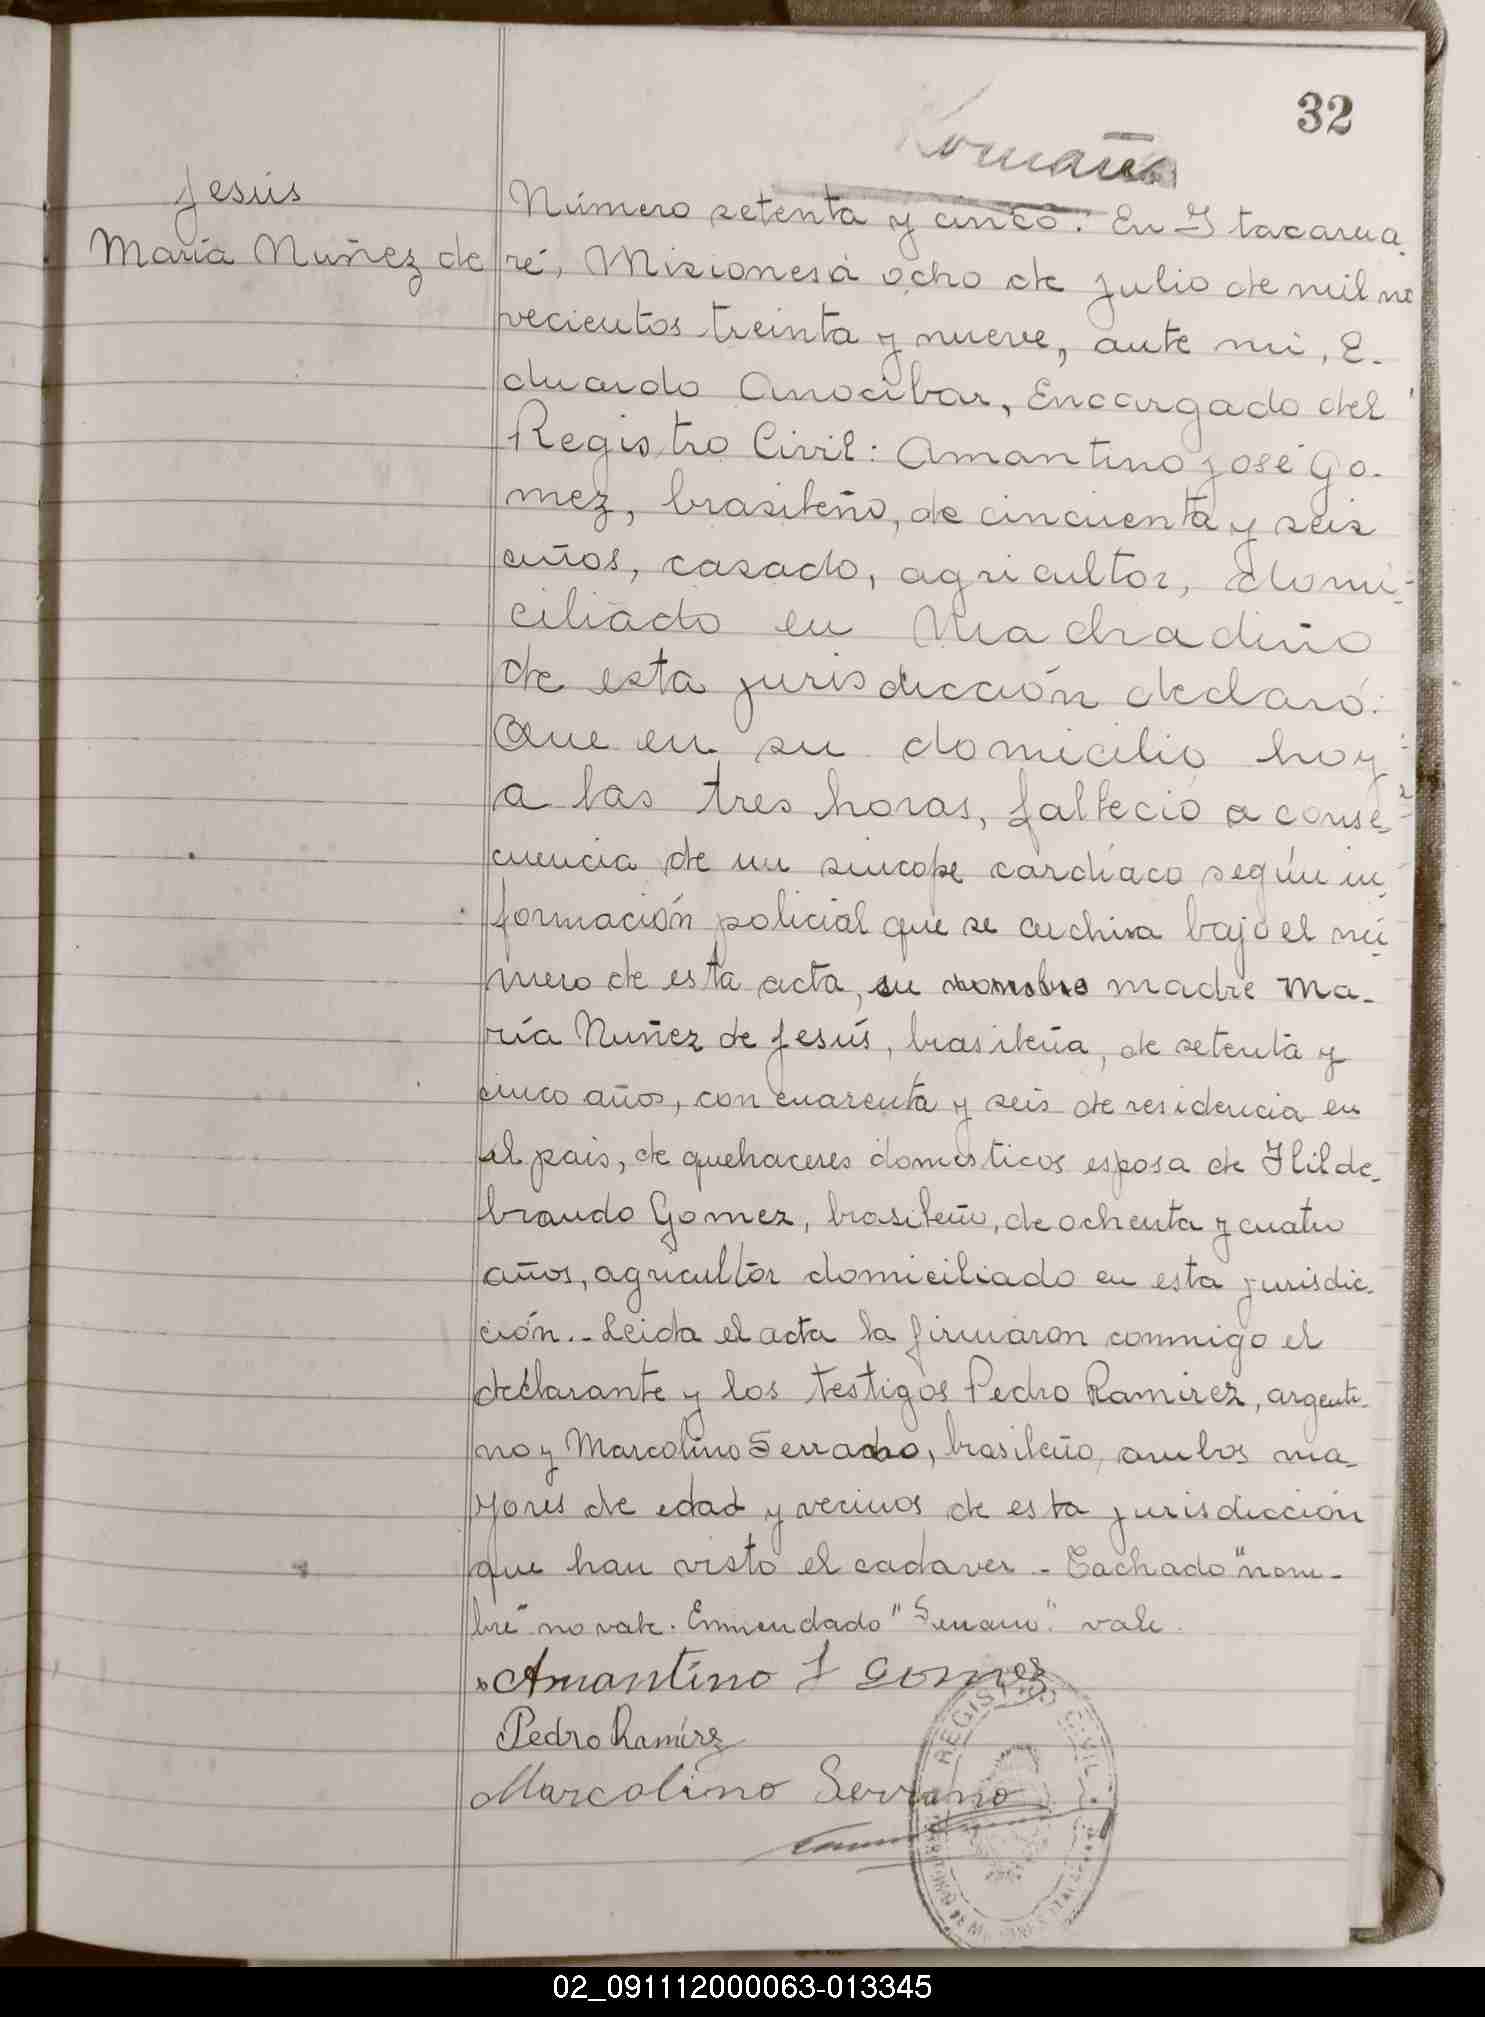 32
Jesús
María Nuñez de
Número setenta y cinco. En Itacarua
ré, Misiones a ocho de julio de mil no
vecientos treinta y nueve, ante mi, E-
duardo Anocibar, Encargado del
Registro Civil: Amantino José Go-
mez, brasileño, de cincuenta y seis
años, casado, agricultor, domi-
ciliado en Machadiño
de esta jurisdicción declaró:
Que en su domicilio hoy
a las tres horas, falleció a conse-
cuencia de un sincope cardíaco según in-
formación policial que se archiva bajo el nú-
mero de esta acta, su nombre madre Ma-
ría Nuñez de Jesús, brasileña, de setenta y
cinco años, con cuarenta y seis de residencia en
el pais, de quehaceres domesticos esposa de Hilde-
brando Gomez, brasileño, de ochenta y cuatro
años, agricultor domiciliado en esta jurisdic-
ción.- Leida el acta la firmaron conmigo el
declarante y los testigos Pedro Ramirez, argenti-
no y Marcolino Serrano, brasileño, ambos ma-
yores de edad y vecinos de esta jurisdicción
que han visto el cadaver - Tachado "nom-
bre" no vale. Enmendado "Serrano". vale.
Amantino J Gomez
Pedro Ramírez
Marcolino Serrano
REGISTRO CIVIL
02_091112000063-013345